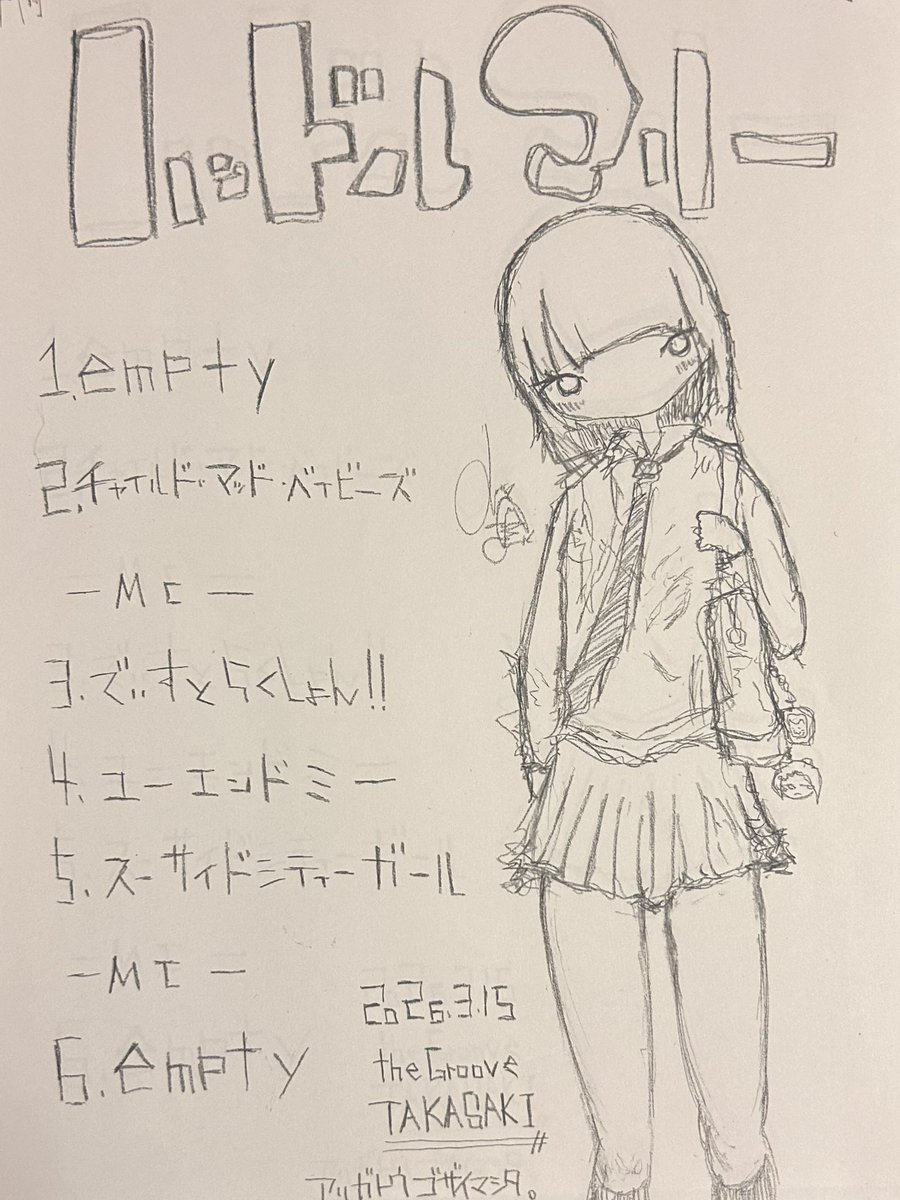 1.empty
2.チャイルド・マッド・ベイビーズ
-Mc-
3.でぃすとらくしょん!!
4.ユーエンドミー
5.スーサイドシティーガール
-MC-
6.empty
2026.3.15
the Groove
TAKASAKI
アリガトウゴザイマシタ。